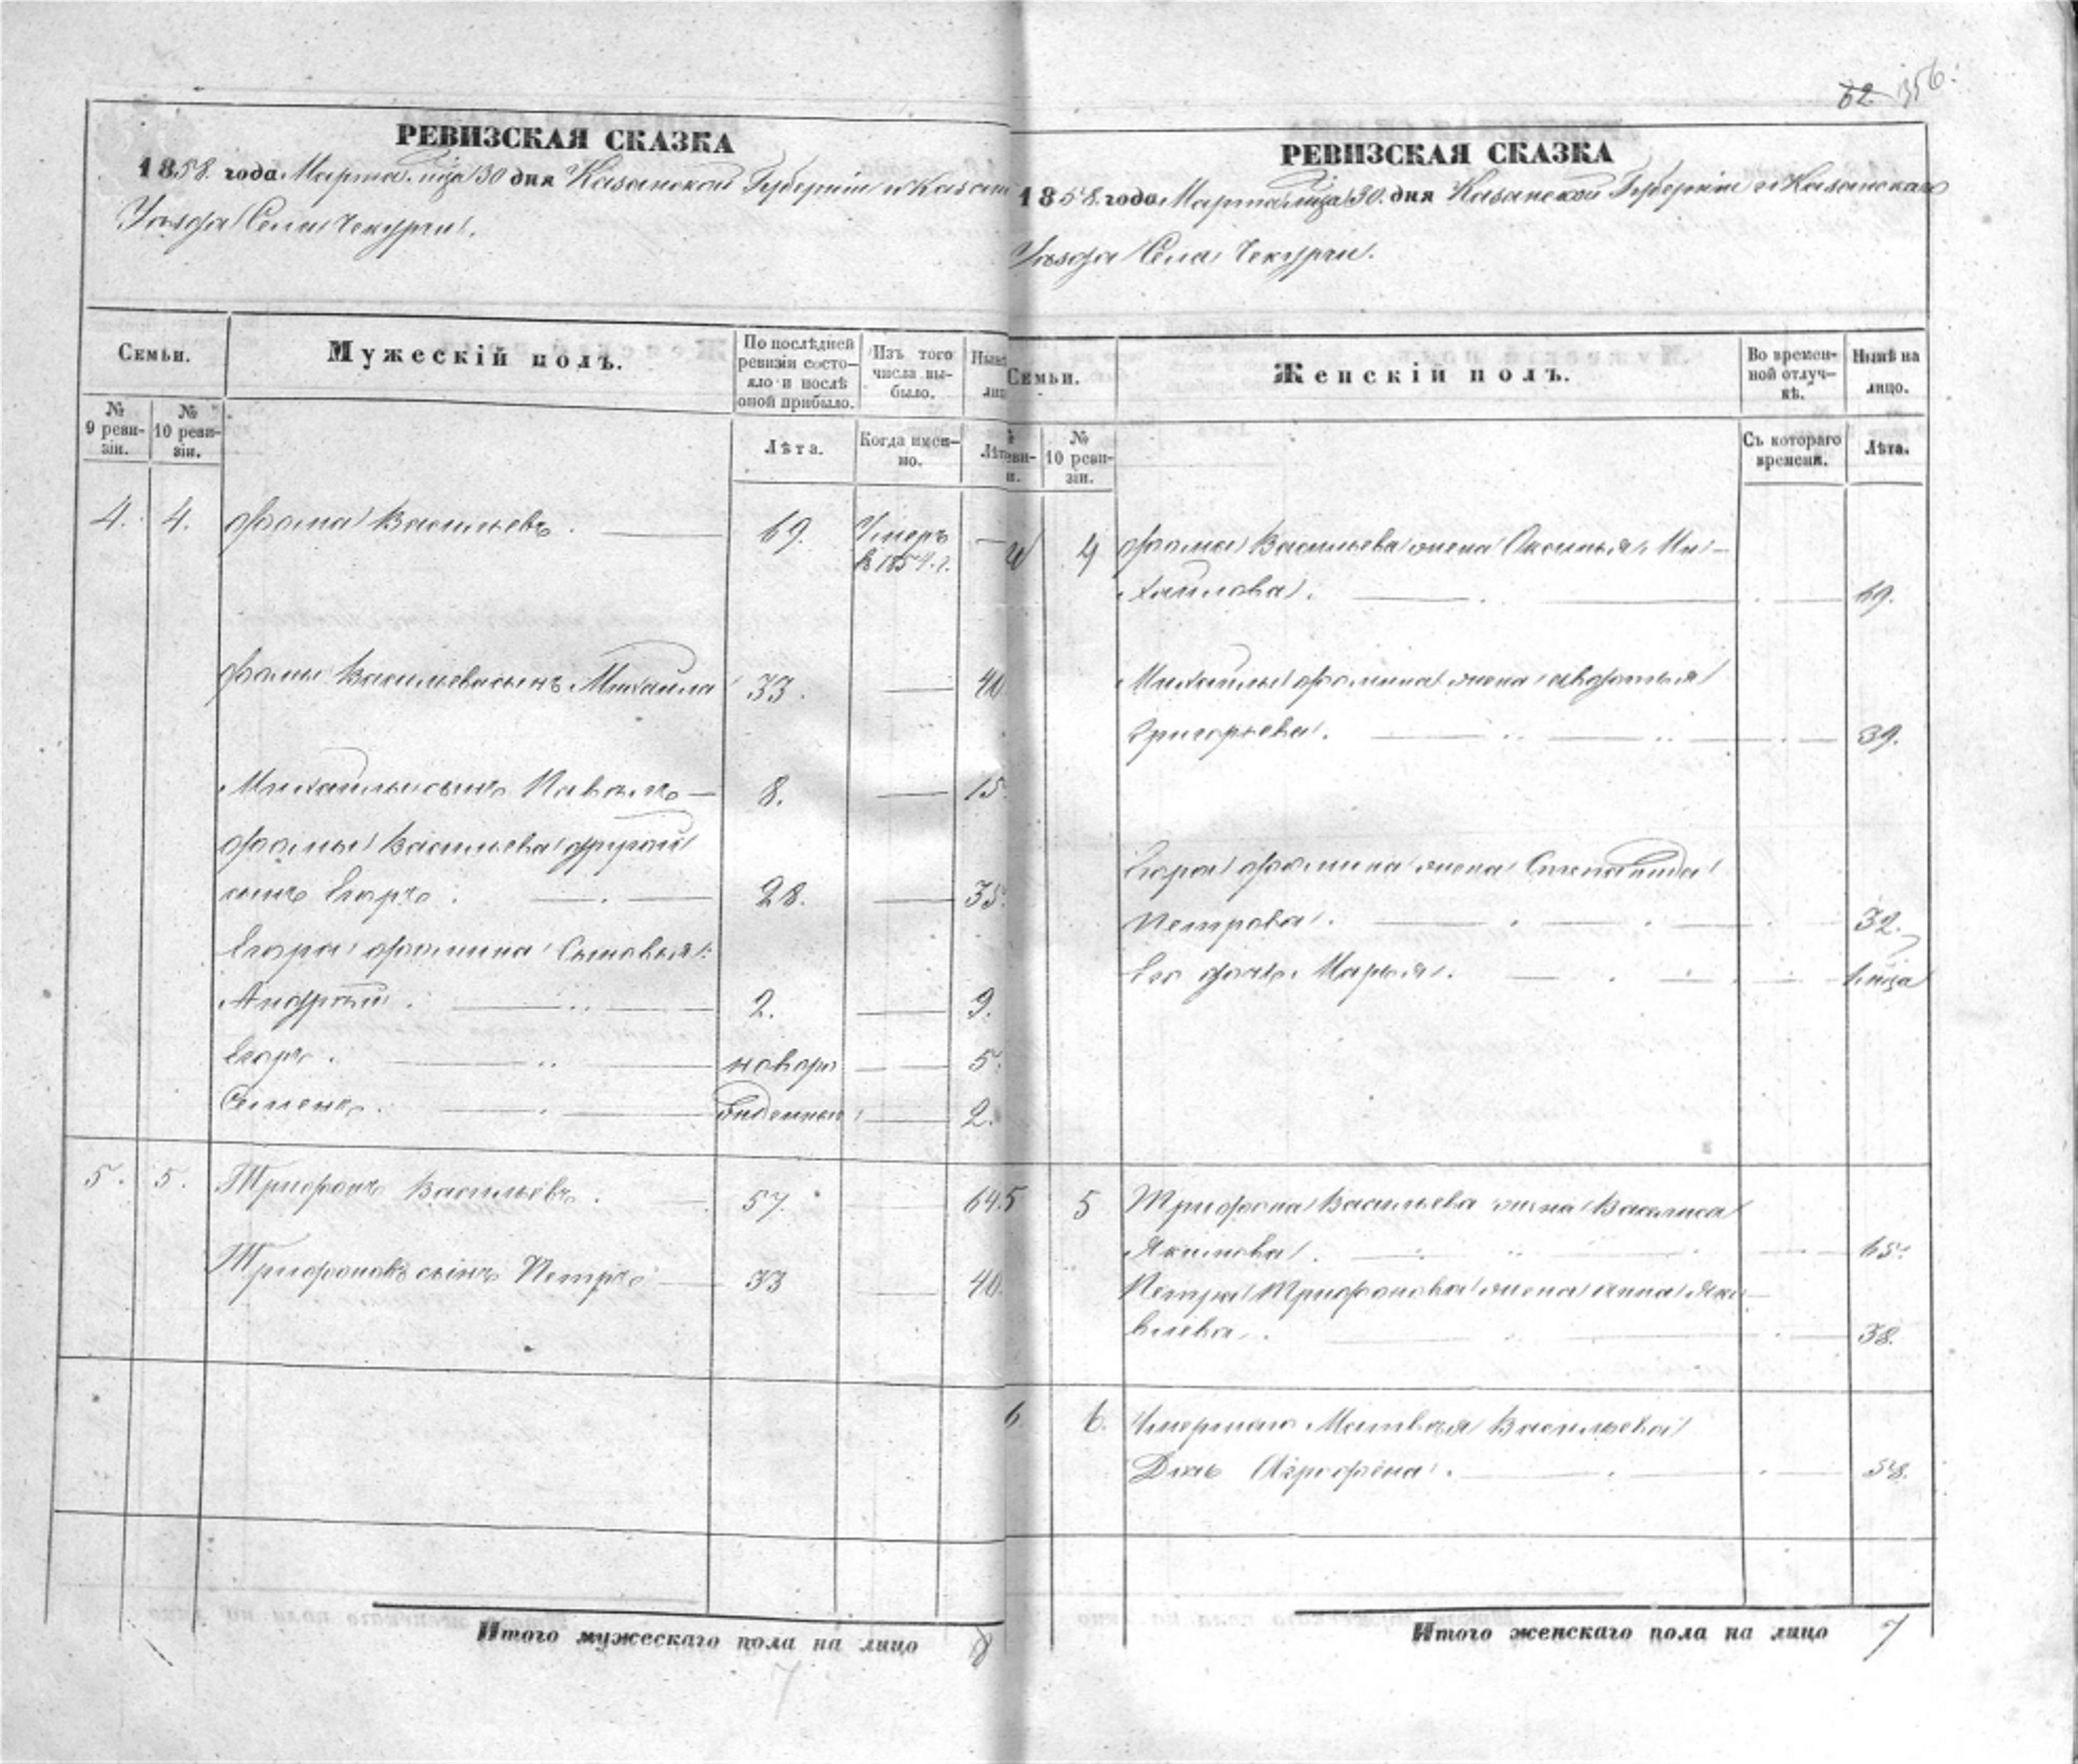 62 356.
РЕВИЗСКАЯ СКАЗКА
1858. года Марта м-ца 30 дня Казанской Губернiи и Казан
Уѣзда Села Чекурчи.
Семьи.
Мужескiй полъ.
По послѣдней ревизiи состояло и послѣ оной прибыло.
Изъ того числа выбыло.
Нынѣ лиц
№ 9 ревизiи.
№ 10 ревизiи.
Лѣта.
Когда именно.
Лѣт
4. 4. Фома Васильевъ. 69. Умеръ —
в 1854. г.
Фомы Васильева сынъ Михаила 33. — 40
Михайлы сынъ Павелъ — 8. — 15.
Фомы Васильева другой
сынъ Егоръ. 28. — 35.
Егора Фомина Сыновья:
Андрей. 2. — 9.
Егоръ. новорож — 5.
Семенъ. денные — 2.
5. 5. Трифонъ Васильевъ. 57. 64.
Трифоновъ сынъ Петръ 33 40.
Итого мужескаго пола на лицо 8
7
РЕВИЗСКАЯ СКАЗКА
1858. года Марта м-ца 30. дня Казанской Губернiи и Казанскаго
Уѣзда Села Чекурчи.
Семьи.
Женскiй полъ.
Во временной отлучкѣ.
Нынѣ на лицо.
№ 10 ревизiи.
Съ котораго времени.
Лѣта.
4 4 Фомы Васильева жена Аксинья Ми-
хайлова. 69.
Михайлы Фомина жена Авдотья
Григорьева. 39.
Егора Фомина жена Степанида
Петрова. 32.
Его дочь Марья. 1 м-ца
5 5 Трифона Васильева жена Василиса
Якимова. 65.
Петра Трифонова жена Анна Яко-
влева. 38.
6 6. Умершаго Матвѣя Васильева
Дочь Агрофена. 58.
Итого женскаго пола на лицо 7